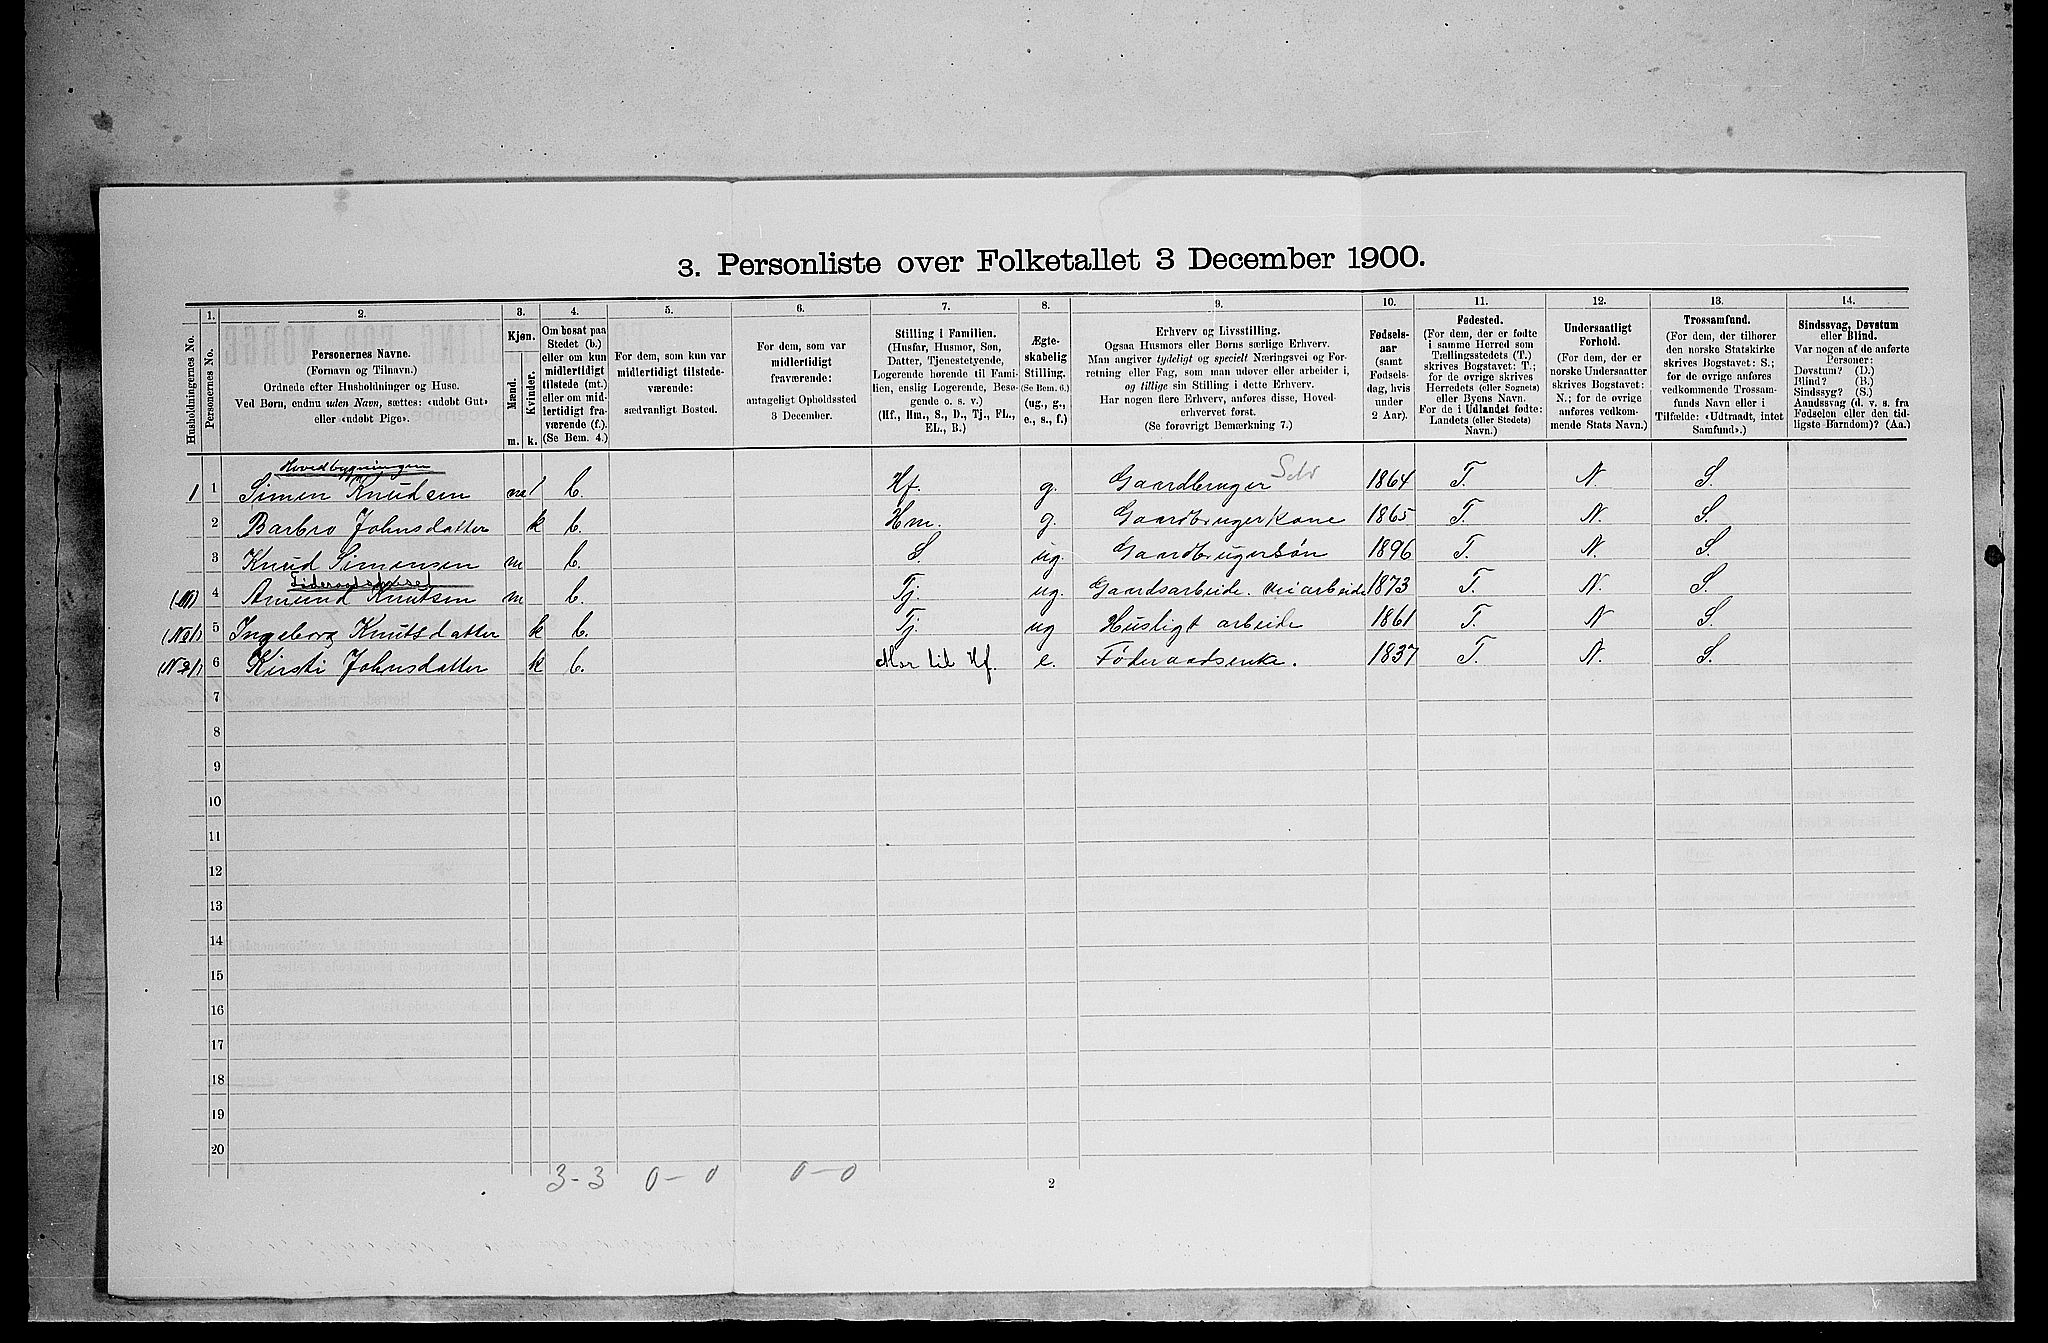 3. Personliste over Folketallet 3 December 1900.
1. 2. 3. 4. 5. 6. 7. 8. 9. 10. 11. 12. 13. 14.
Husholdningernes No.
Personernes No.
Personernes Navne.
(Fornavn og Tilnavn.)
Ordnede efter Husholdninger og Huse.
Ved Børn, endnu uden Navn, sættes: «udøbt Gut»
eller «udøbt Pige».
Kjøn.
Mænd.
Kvinder.
m. k.
Om bosat paa
Stedet (b.)
eller om kun
midlertidigt
tilstede (mt.)
eller om mid-
lertidigt fra-
værende (f.).
(Se Bem. 4.)
For dem, som kun var
midlertidigt tilstede-
værende:
sædvanligt Bosted.
For dem, som var
midlertidigt
fraværende:
antageligt Opholdssted
3 December.
Stilling i Familien.
(Husfar, Husmor, Søn,
Datter, Tjenestetyende,
Logerende hørende til Fami-
lien, enslig Logerende, Besø-
gende o. s. v.)
(Hf., Hm., S., D., Tj., FL.,
EL., B.)
Ægte-
skabelig
Stilling.
(Se Bem. 6.)
(ug., g.,
e., s., f.)
Erhverv og Livsstilling.
Ogsaa Husmors eller Børns særlige Erhverv.
Man angiver tydeligt og specielt Næringsvei og For-
retning eller Fag, som man udøver eller arbeider i,
og tillige sin Stilling i dette Erhverv.
Har nogen flere Erhverv, anføres disse, Hoved-
erhvervet først.
(Se forøvrigt Bemærkning 7.)
Fødsels-
aar
(samt
Fødsels-
dag, hvis
under
2 Aar).
Fødested.
(For dem, der er fødte
i samme Herred som
Tællingsstedets (T.)
skrives Bogstavet: T.;
for de øvrige skrives
Herredets (eller Sognets)
eller Byens Navn.
For de i Udlandet fødte:
Landets (eller Stedets)
Navn.)
Undersaatligt
Forhold.
(For dem, der er
norske Undersaatter
skrives Bogstavet:
N.; for de øvrige
anføres vedkom-
mende Stats Navn.)
Trossamfund.
(For dem, der tilhører
den norske Statskirke
skrives Bogstavet: S.;
for de øvrige anføres
vedkommende Trossam-
funds Navn eller i
Tilfælde: «Udtraadt, intet
Samfund».)
Sindssvag, Døvstum
eller Blind.
Var nogen af de anførte
Personer:
Døvstum? (D.)
Blind? (B.)
Sindssyg? (S.)
Aandssvag (d. v. s. fra
Fødselen eller den tid-
ligste Barndom)? (Aa.)
Hovedbygningen
1 1 Simen Knudsen m 1 b. Hf. g. Gaardbruger Selv 1864 T. N. S.
2 Barbro Johnsdatter k b. Hm. g. Gaardbruger Kone 1865 T. N. S.
3 Knud Simensen m b. S. ug Gaardbrugersøn 1896 T. N. S.
4 Amund Knutsen m b. Tj. ug. Gaardsarbeide. veiarbeide 1873 T. N. S.
5 Ingeborg Knutsdatter k b. Tj. ug Husligt arbeide 1861 T. N S.
6 Kirsti Johnsdatter k b. Mor til Hf. e. Føderaadsenke. 1837 T. N. S.
7
8
9
10
11
12
13
14
15
16
17
18
19
20
3-3 0-0 0-0
2